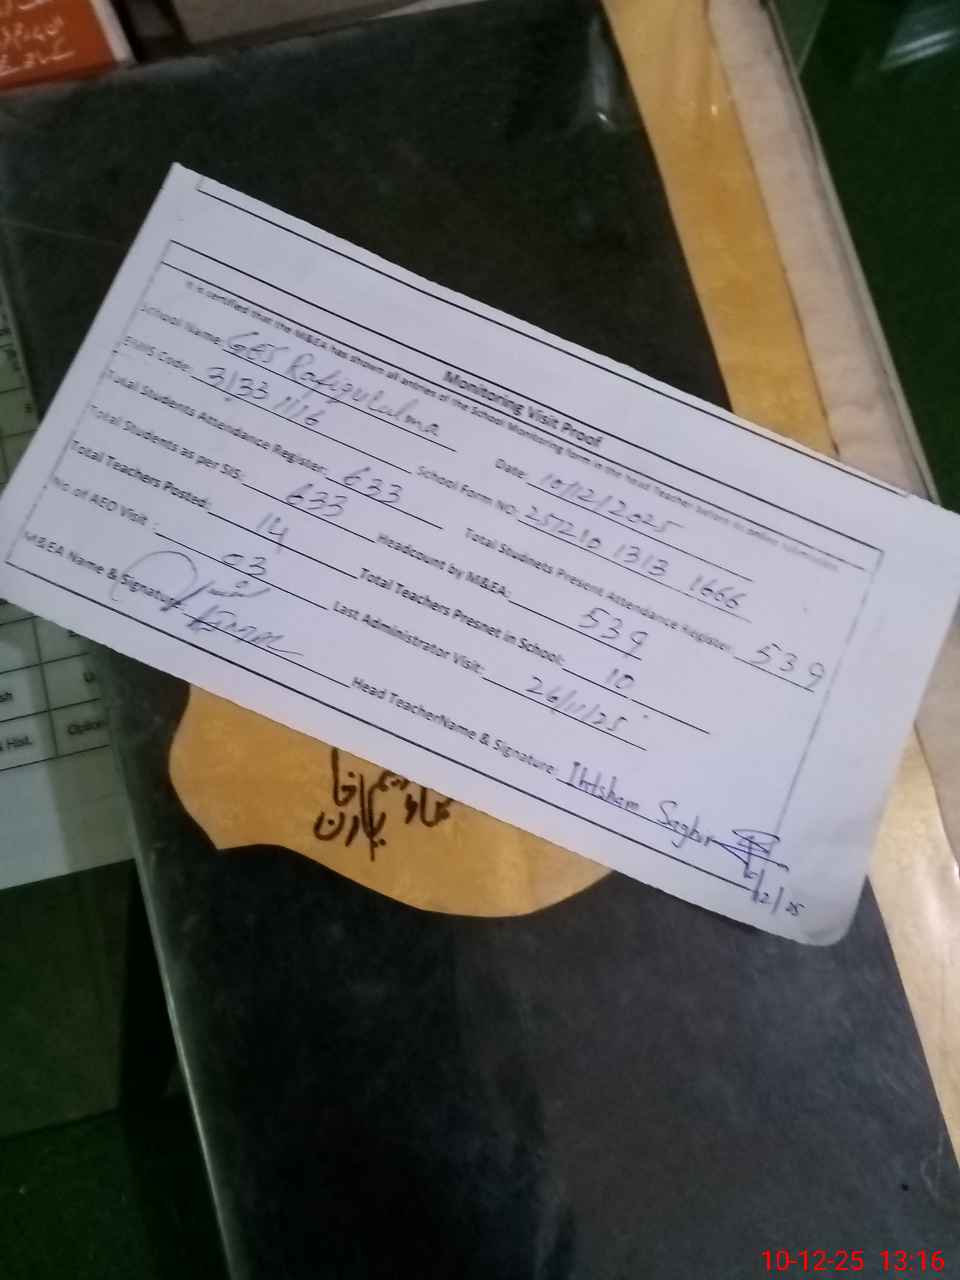 Monitoring Visit Proof
It is certified that the M&EA has shown all entries of the School Monitoring form in the head Teacher before its online submission.
School Name: GES Rafiqulalma Date: 10/12/2025
EMIS Code: 31331116 School Form NO: 251210 1313 1666
Total Students Attendance Register: 633 Total Studnets Present Attendance Register: 539
Total Students as per SIS: 633 Headcount by M&EA: 539
Total Teachers Posted: 14 Total Teachers Presnet in School: 10
No of AEO Visit : 03 Last Administrator Visit: 26/11/25
M&EA Name & Signature: Head TeacherName & Signature: Ihtsham Sagbir
/12/25
10-12-25 13:16